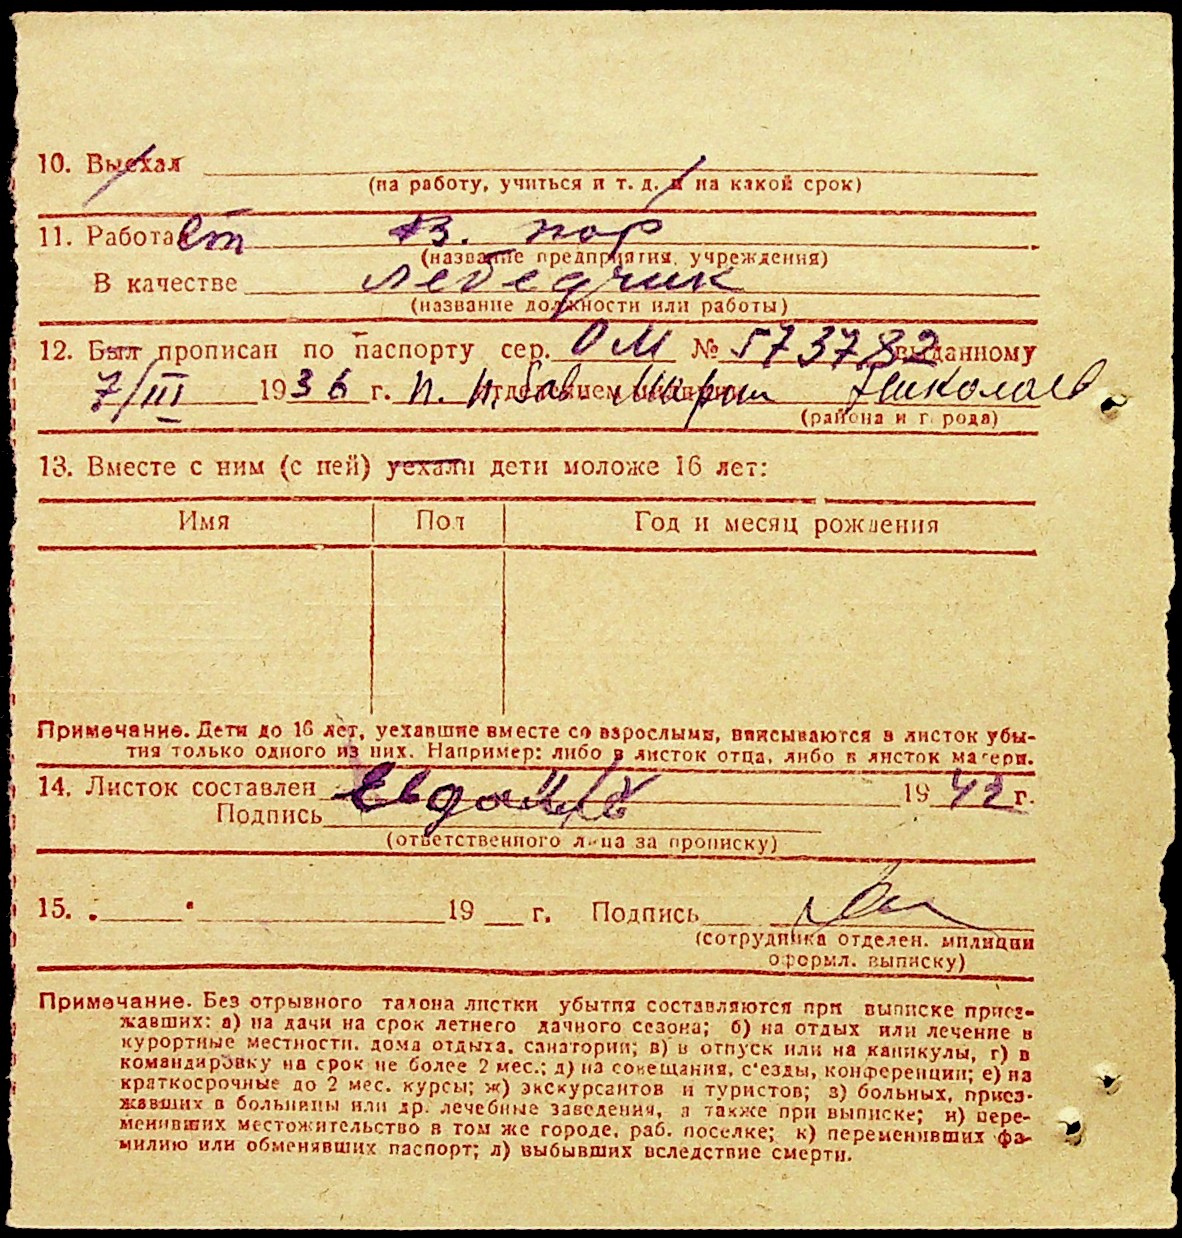 10. Выехал
(на работу, учиться и т. д. и на какой срок)
11. Работа
(название предприятия, учреждения)
В качестве лебедчик
(название должности или работы)
12. Был прописан по паспорту сер. ОМ № 573782 выданному
7/III 1936 г. отделением милиции Николаев
(района и города)
13. Вместе с ним (с ней) уехали дети моложе 16 лет:
Имя Пол Год и месяц рождения
Примечание. Дети до 16 лет, уехавшие вместе со взрослыми, вписываются в листок убы-
тия только одного из них. Например: либо в листок отца, либо в листок матери.
14. Листок составлен 1942 г.
Подпись
(ответственного лица за прописку)
15. . " 19 г. Подпись
(сотрудника отделен. милиции
оформл. выписку)
Примечание. Без отрывного талона листки убытия составляются при выписке приез-
жавших: а) на дачи на срок летнего дачного сезона; б) на отдых или лечение в
курортные местности, дома отдыха, санатории; в) в отпуск или на каникулы, г) в
командировку на срок не более 2 мес.; д) на совещания, с'езды, конференции; е) на
краткосрочные до 2 мес. курсы; ж) экскурсантов и туристов; з) больных, приез-
жавших в больницы или др. лечебные заведения, а также при выписке; и) пере-
менивших местожительство в том же городе, раб. поселке; к) переменивших фа-
милию или обменявших паспорт; л) выбывших вследствие смерти.